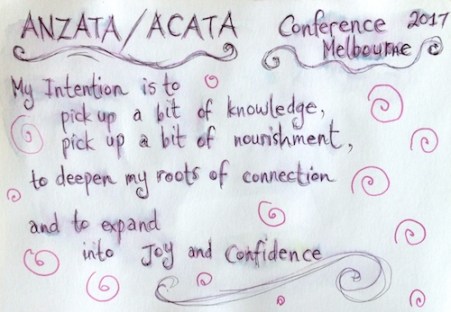 ANZATA/ACATA Conference 2017
Melbourne
My Intention is to
pick up a bit of knowledge,
pick up a bit of nourishment,
to deepen my roots of connection
and to expand
into Joy and Confidence